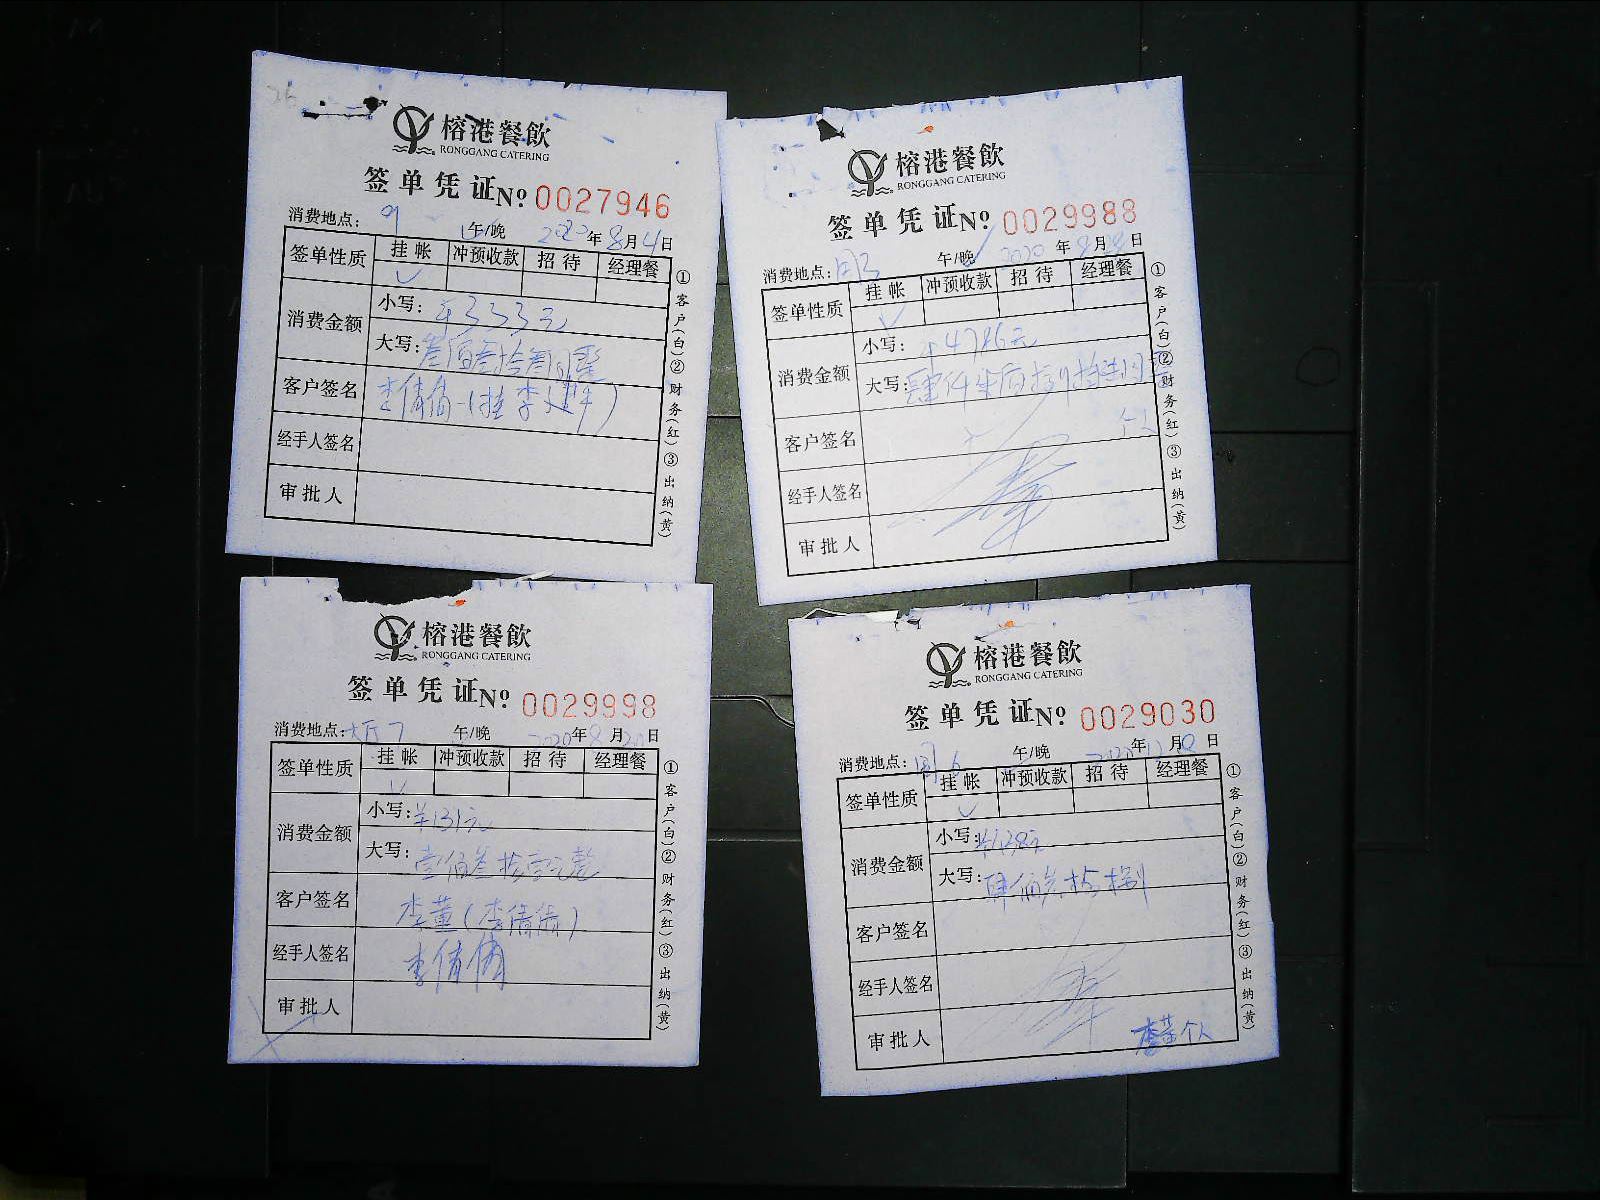 榕港餐飲
RONGGANG CATERING
签单凭证№ 0027946
消费地点： 午/晚 2020年8月4日
签单性质 挂帐 冲预收款 招待 经理餐
✓
消费金额 小写：¥333元
大写：叁佰叁拾叁圆整
客户签名 李倩倩
经手人签名
审批人
①客户(白)②财务(红)③出纳(黄)
榕港餐飲
RONGGANG CATERING
签单凭证№ 0029988
消费地点： 午/晚 2020年8月 日
签单性质 挂帐 冲预收款 招待 经理餐
✓
消费金额 小写：¥4786元
大写：肆仟柒佰捌拾陆圆
客户签名 个人
经手人签名
审批人
①客户(白)②财务(红)③出纳(黄)
榕港餐飲
RONGGANG CATERING
签单凭证№ 0029998
消费地点：大厅7 午/晚 2020年 月 日
签单性质 挂帐 冲预收款 招待 经理餐
✓
消费金额 小写：¥131元
大写：壹佰叁拾壹元整
客户签名 李董(李倩倩)
经手人签名 李倩倩
审批人
①客户(白)②财务(红)③出纳(黄)
榕港餐飲
RONGGANG CATERING
签单凭证№ 0029030
消费地点： 午/晚 年 月 日
签单性质 挂帐 冲预收款 招待 经理餐
✓
消费金额 小写：
大写：
客户签名
经手人签名
审批人 李董个人
①客户(白)②财务(红)③出纳(黄)